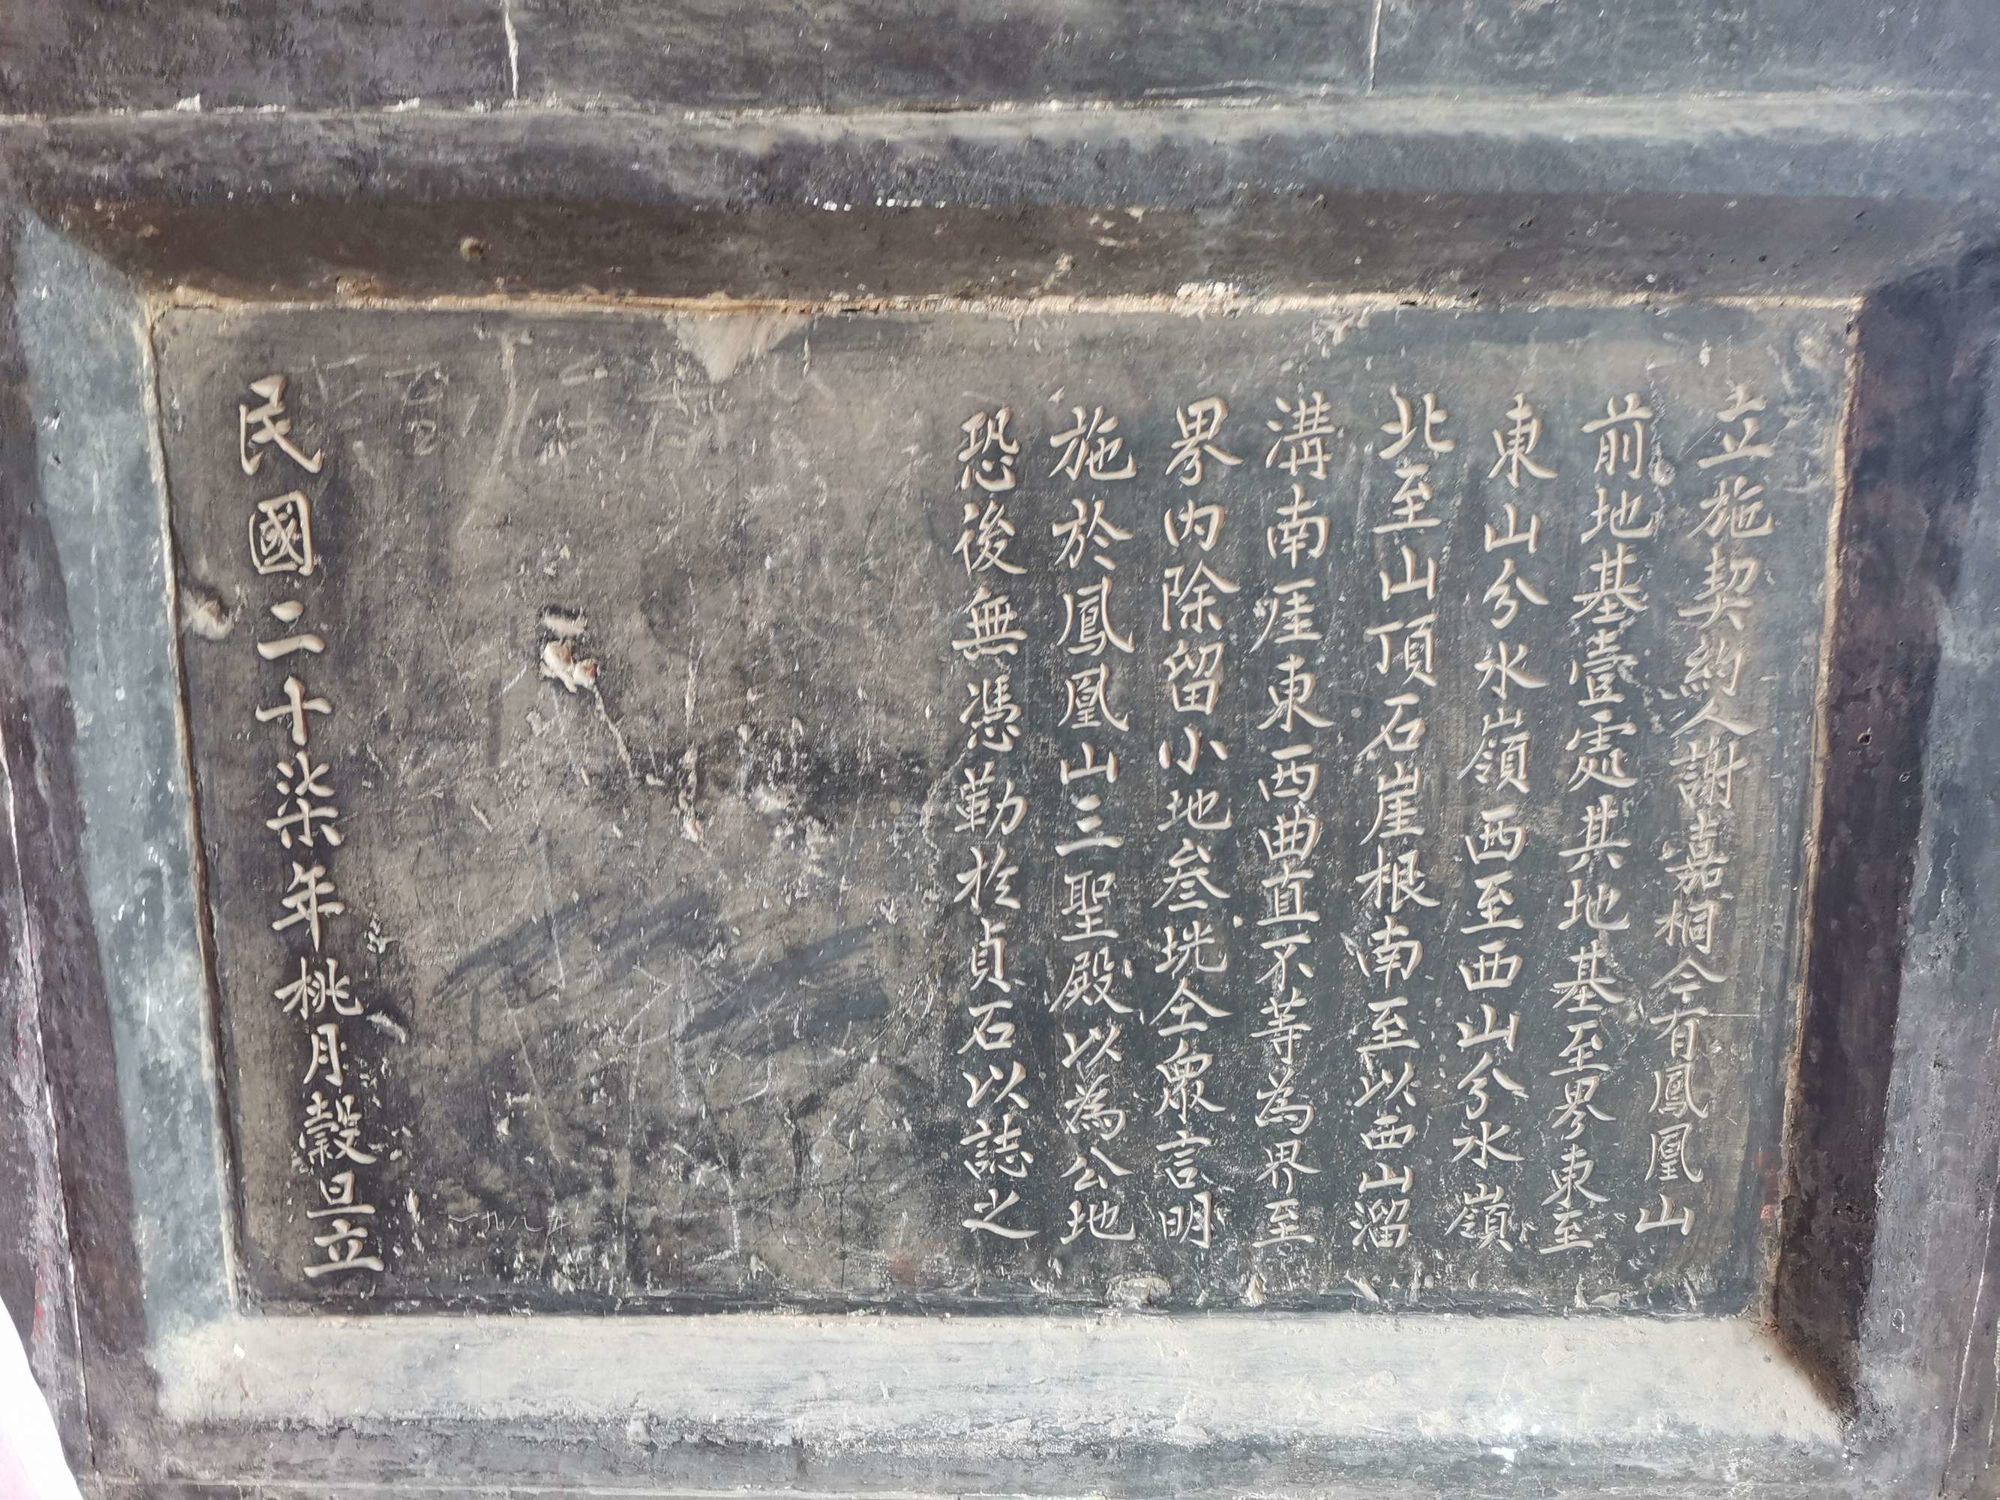 立施契約人謝嘉桐今有鳳凰山
前地基壹處其地基至界東至
東山分水嶺西至西山分水嶺
北至山頂石崖根南至以西山溜
溝南厓東西曲直不等為界至
界內除留小地叁垙全衆言明
施於鳳凰山三聖殿以為公地
恐後無憑勒於貞石以誌之
民國二十柒年桃月穀旦立
一九八九年